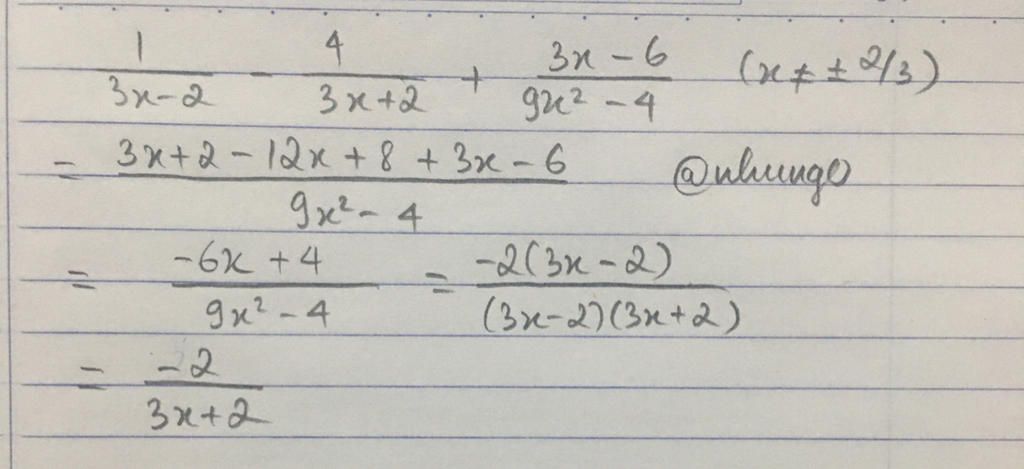 1/(3x-2) - 4/(3x+2) + (3x-6)/(9x²-4) (x ≠ ± 2/3)
= (3x+2-12x+8+3x-6)/(9x²-4) @nhungo
= (-6x+4)/(9x²-4) = -2(3x-2)/((3x-2)(3x+2))
= -2/(3x+2)